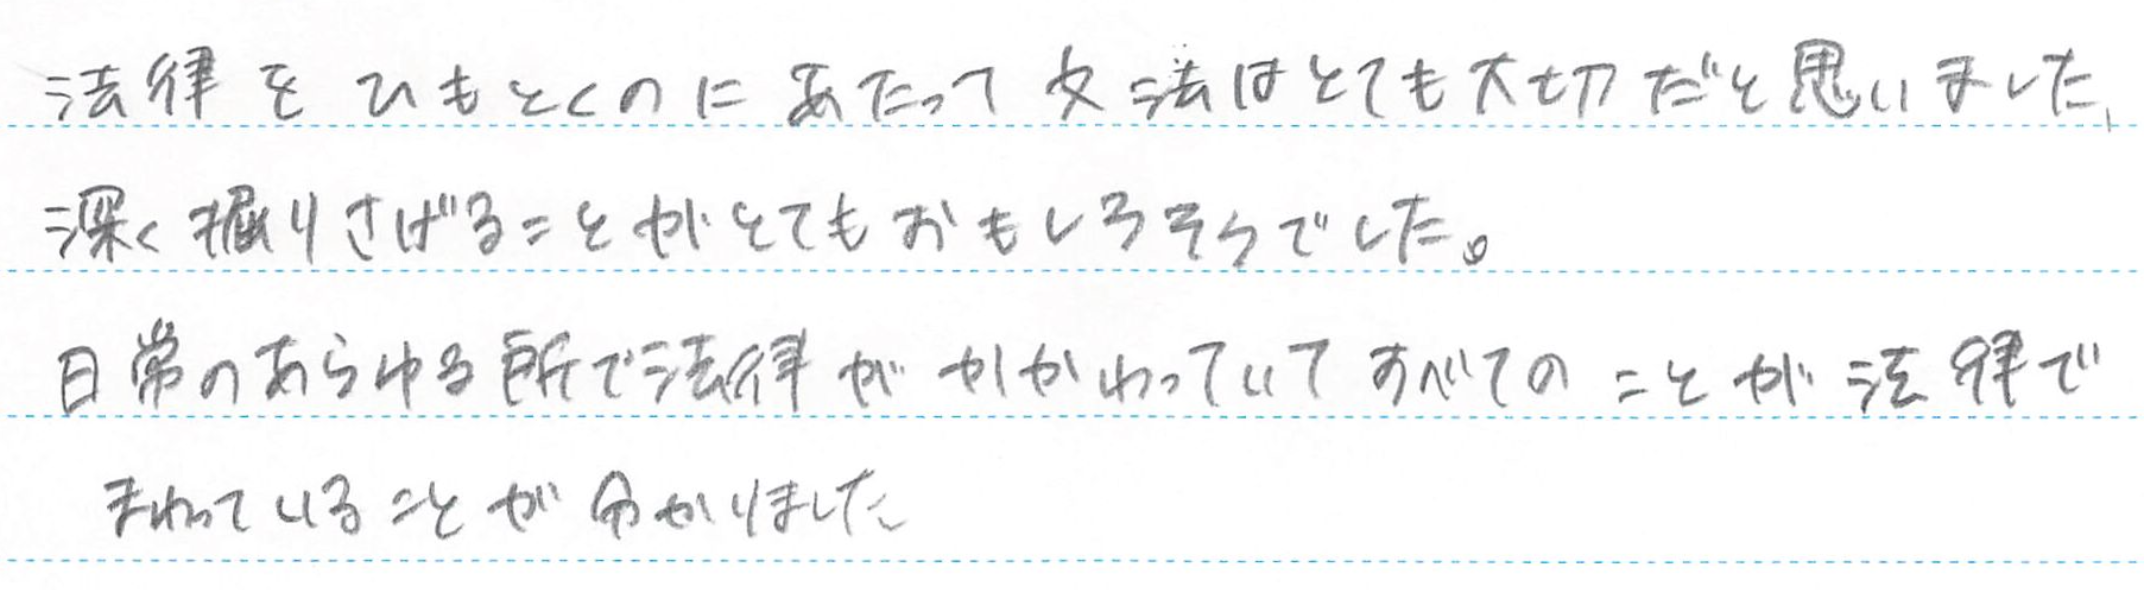 法律をひもとくのにあたって文法はとても大切だと思いました、
深く掘りさげることがとてもおもしろそうでした。
日常のあらゆる所で法律がかかわっていてすべてのことが法律で
まわっていることが分かりました